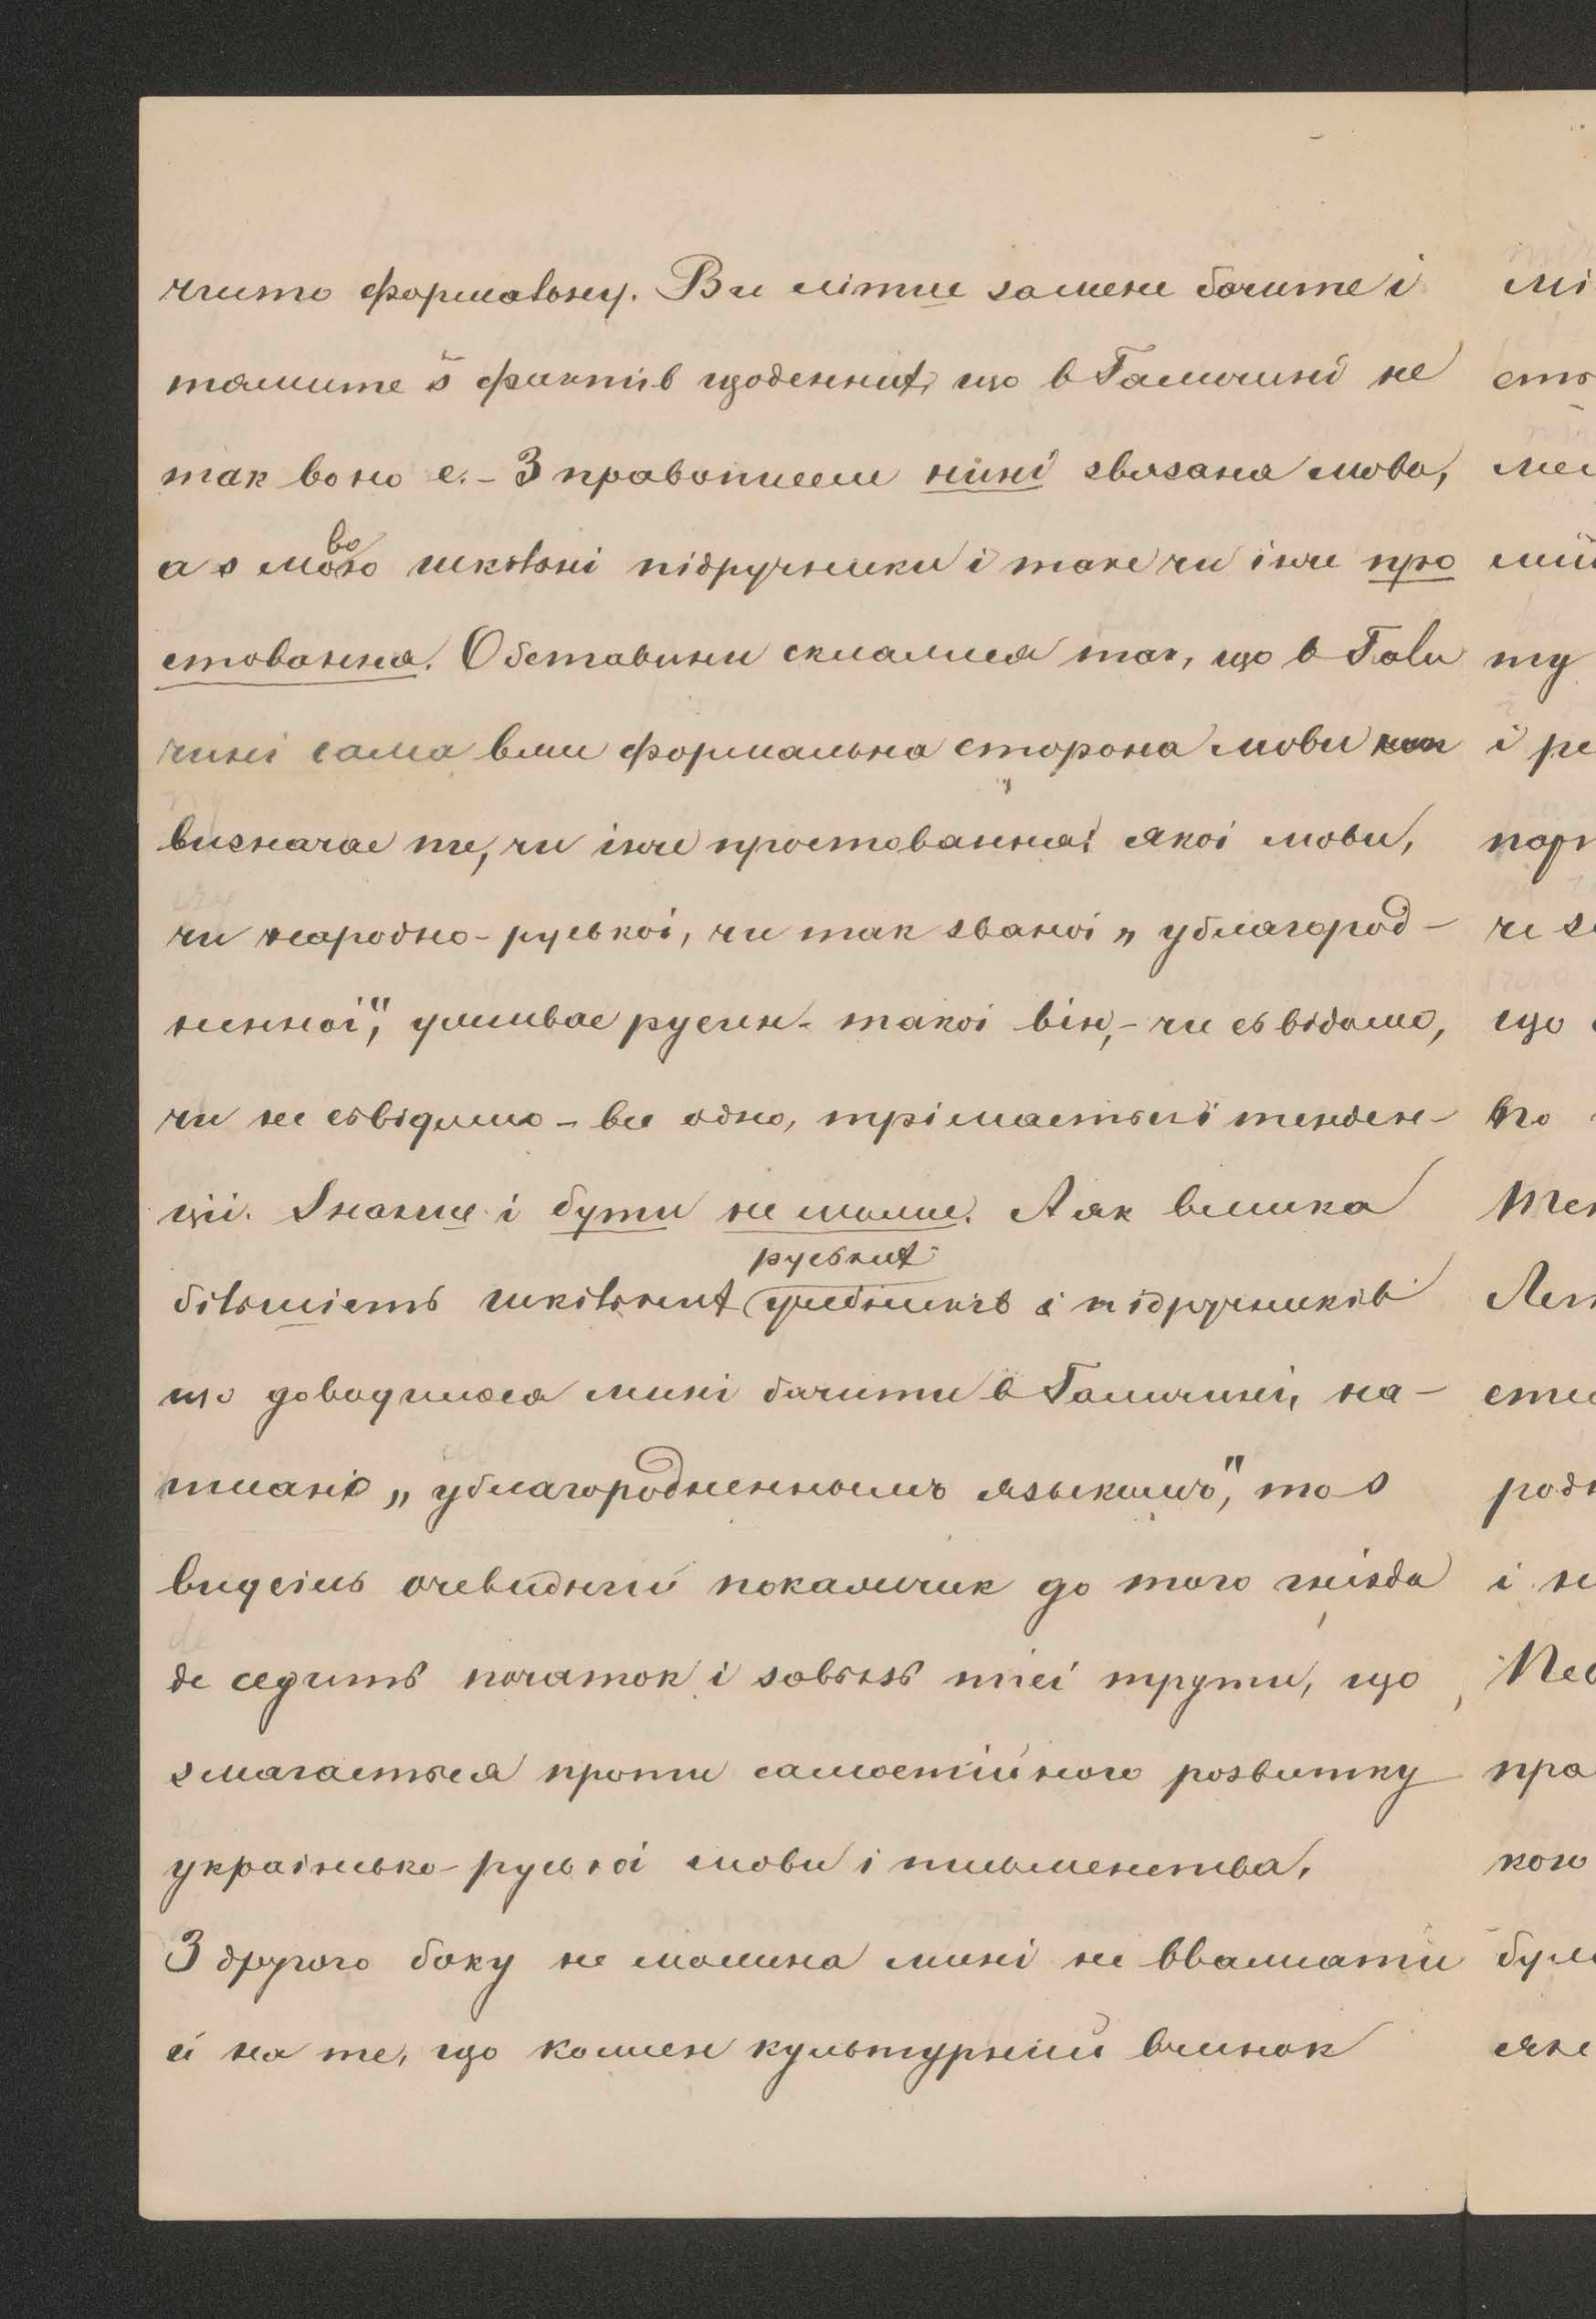 чисто формальну. Ви ліпше замене бачите і
тямите з фактів щоденних, що в Галичині не
так воно е. – З правописом нині звязана мова,
а з мовою шкільні підручники і таке чи інче про
стованнє. Обставини склалися так, що в Гали
чині сама вже формальна сторона мови
визначае те, чи інче простованнє: якоі мови,
чи народно-руськоі, чи так званоі „ублагород-
ненноі", уживае русин – такоі він, – чи сьвідомо,
чи не сьвідомо – все одно, трімаетьсі тенден-
ціі. Інакше і бути не може. А як велика
більшість шкільних руських учебників і підручників
що доводилося мині бачити в Галичині, на-
писані „ублагородненнымъ языкомъ", то з
відсіль очевидний покажчик до того гнізда
де седить початок і завьязь тіеі трути, що
змагаеться проти самостійного розвитку
украінсько-руськоі мови і письменства.
З другого боку не можна мині не вважати
й на те, що кожен культурний вчинок
мі
ту
і ре
що
Тен
родн
і н
пра
кою